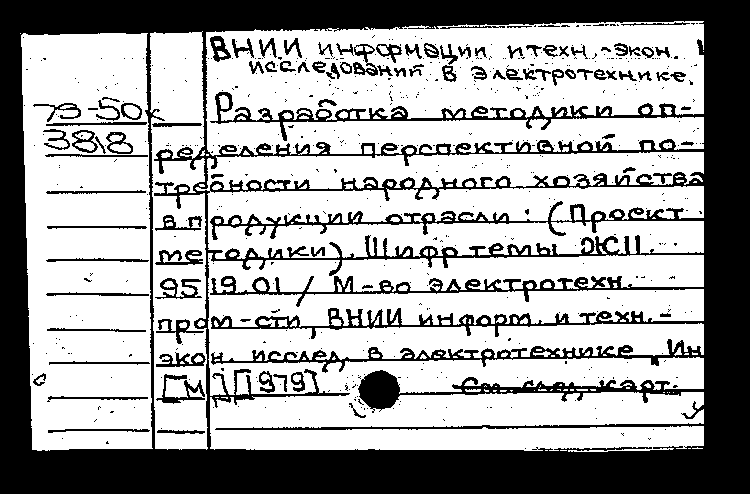 ВНИИ информации и техн.-экон.
исследований в электротехнике.
79-50к Разработка методики оп-
3818 ределения перспективной по-
требности народного хозяйства
в продукции отрасли: (Проект
методики). Шифр темы ЭЖ11.
95.19.01 / М-во электротехн.
пром-сти, ВНИИ информ. и техн.-
экон. исслед. в электротехнике "Ин
[М] [1979] См. след. карт.